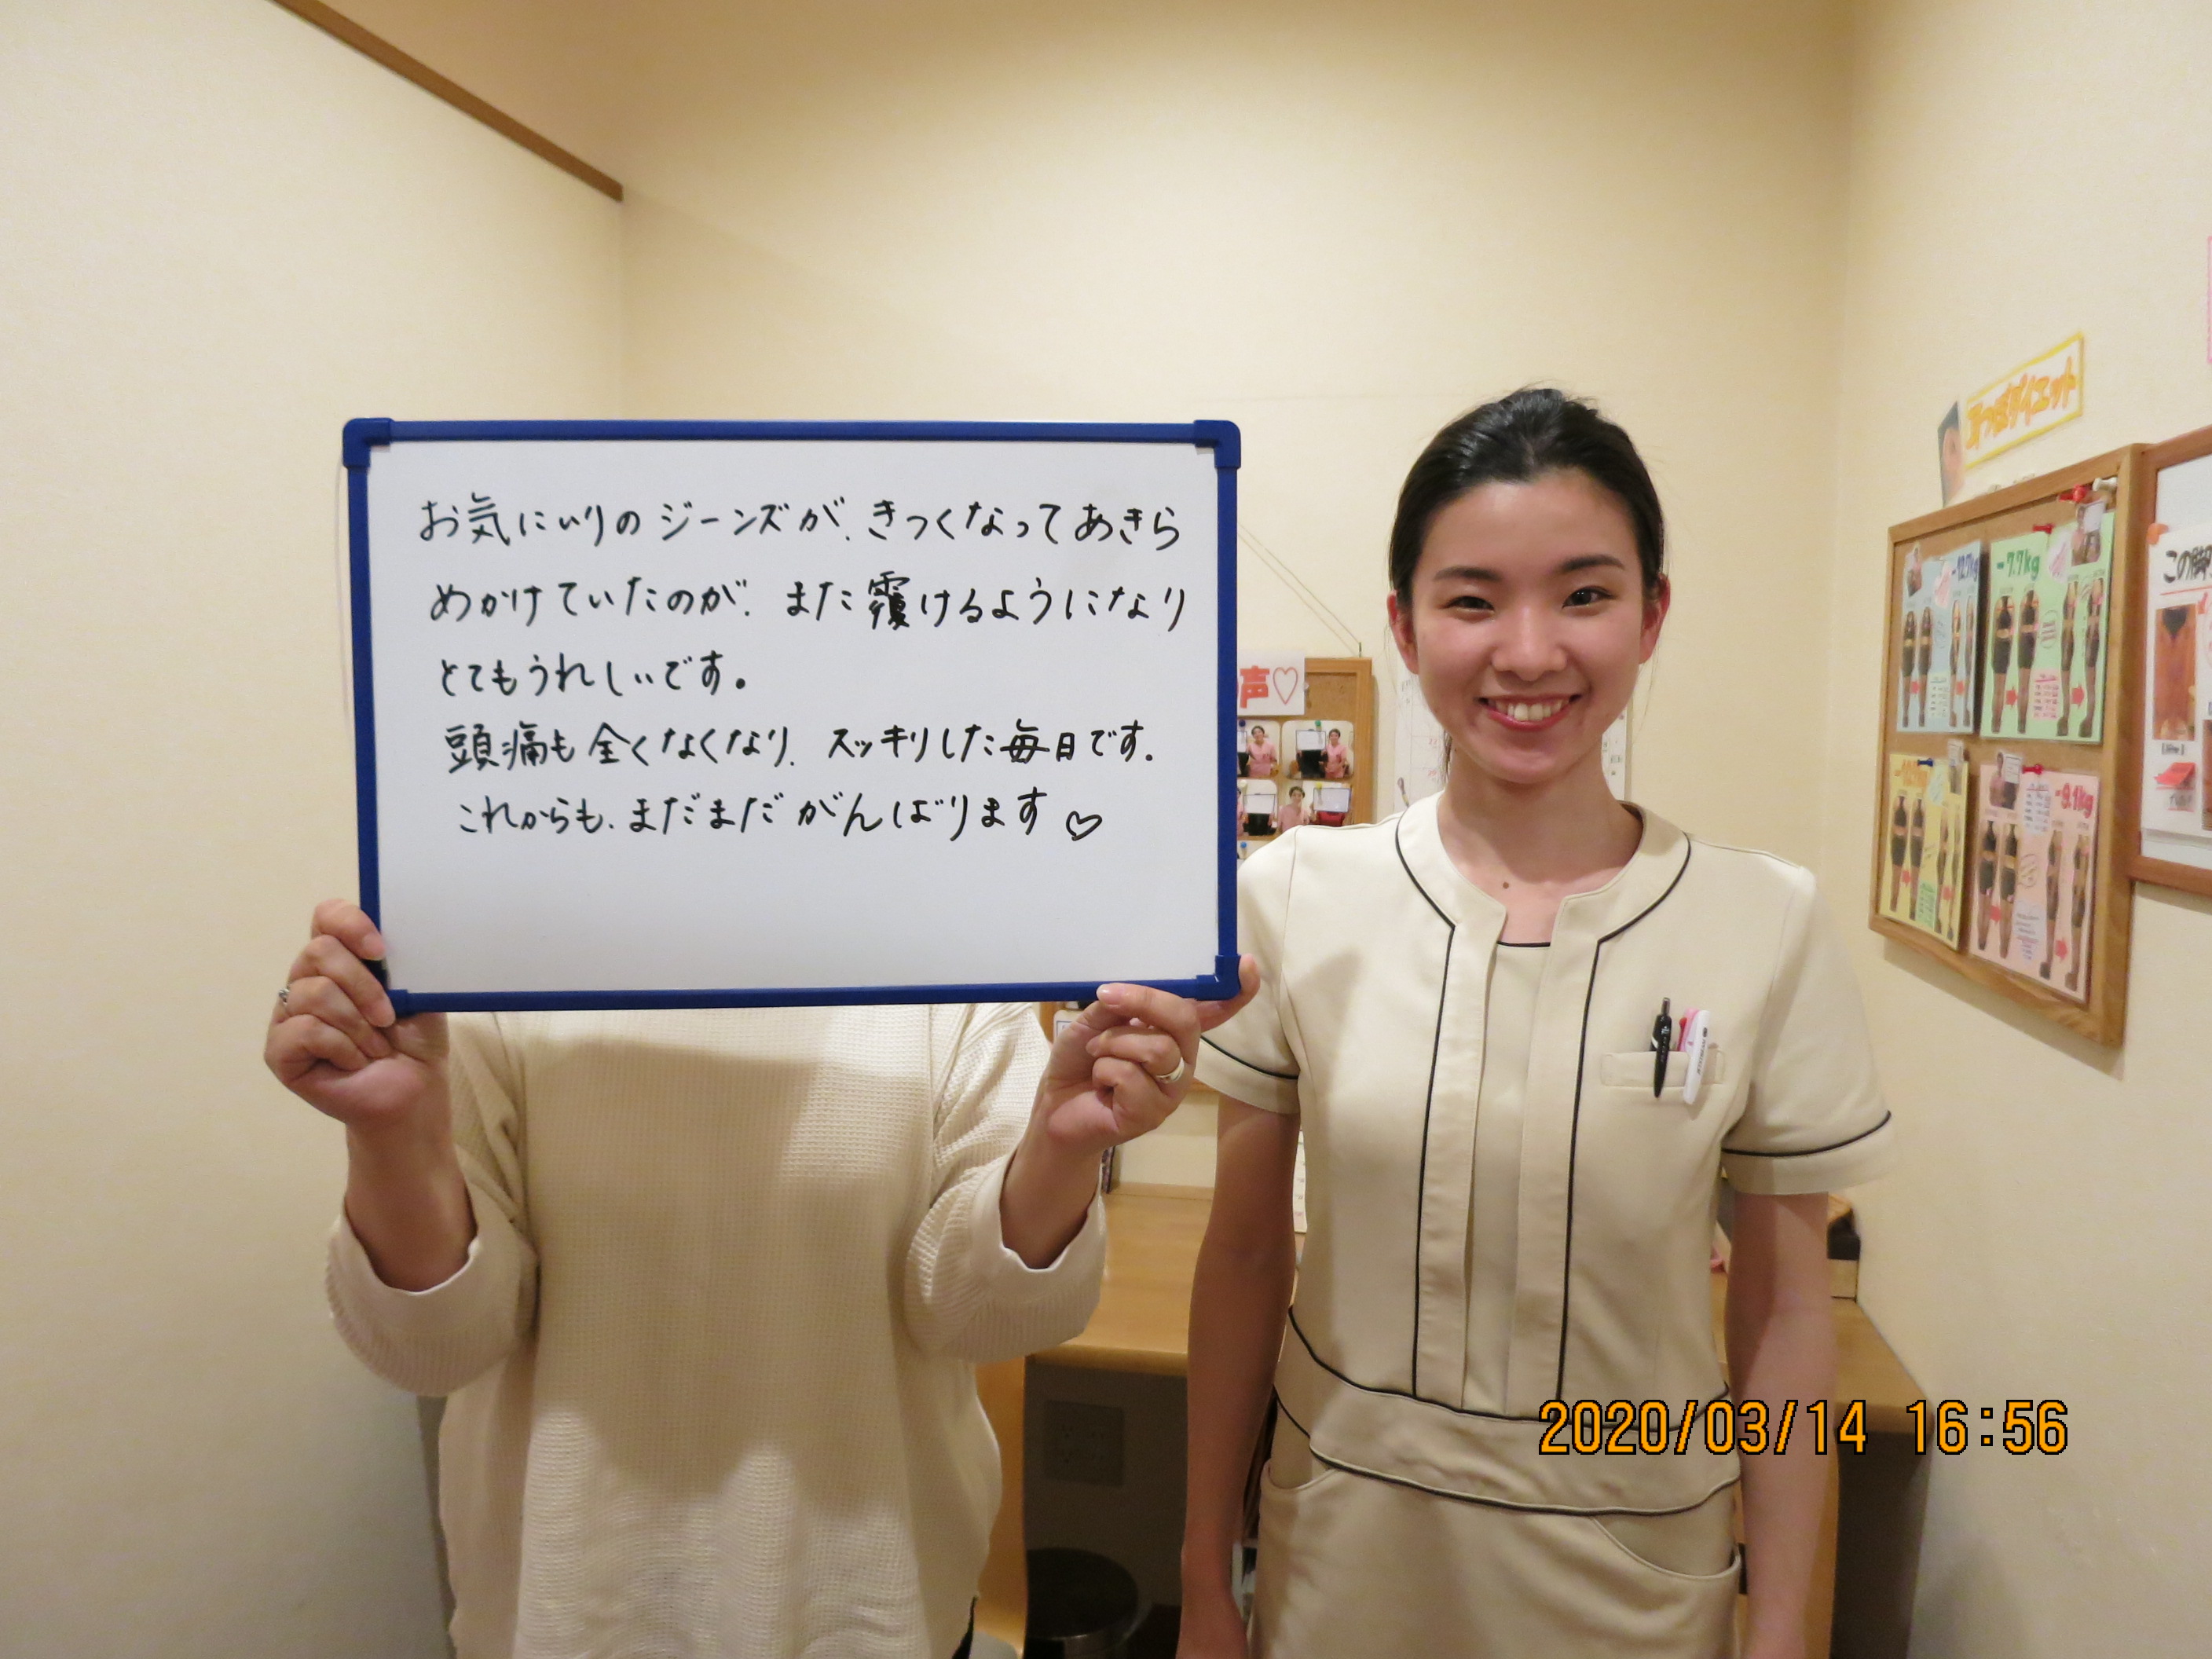 お気にいりのジーンズが、きつくなってあきら
めかけていたのが、また履けるようになり
とてもうれしいです。
頭痛も全くなくなり、スッキリした毎日です。
これからも、まだまだがんばります♡
声♡
耳つぼダイエット
-12.7kg
-7.7kg
-9.1kg
この脚
2020/03/14 16:56